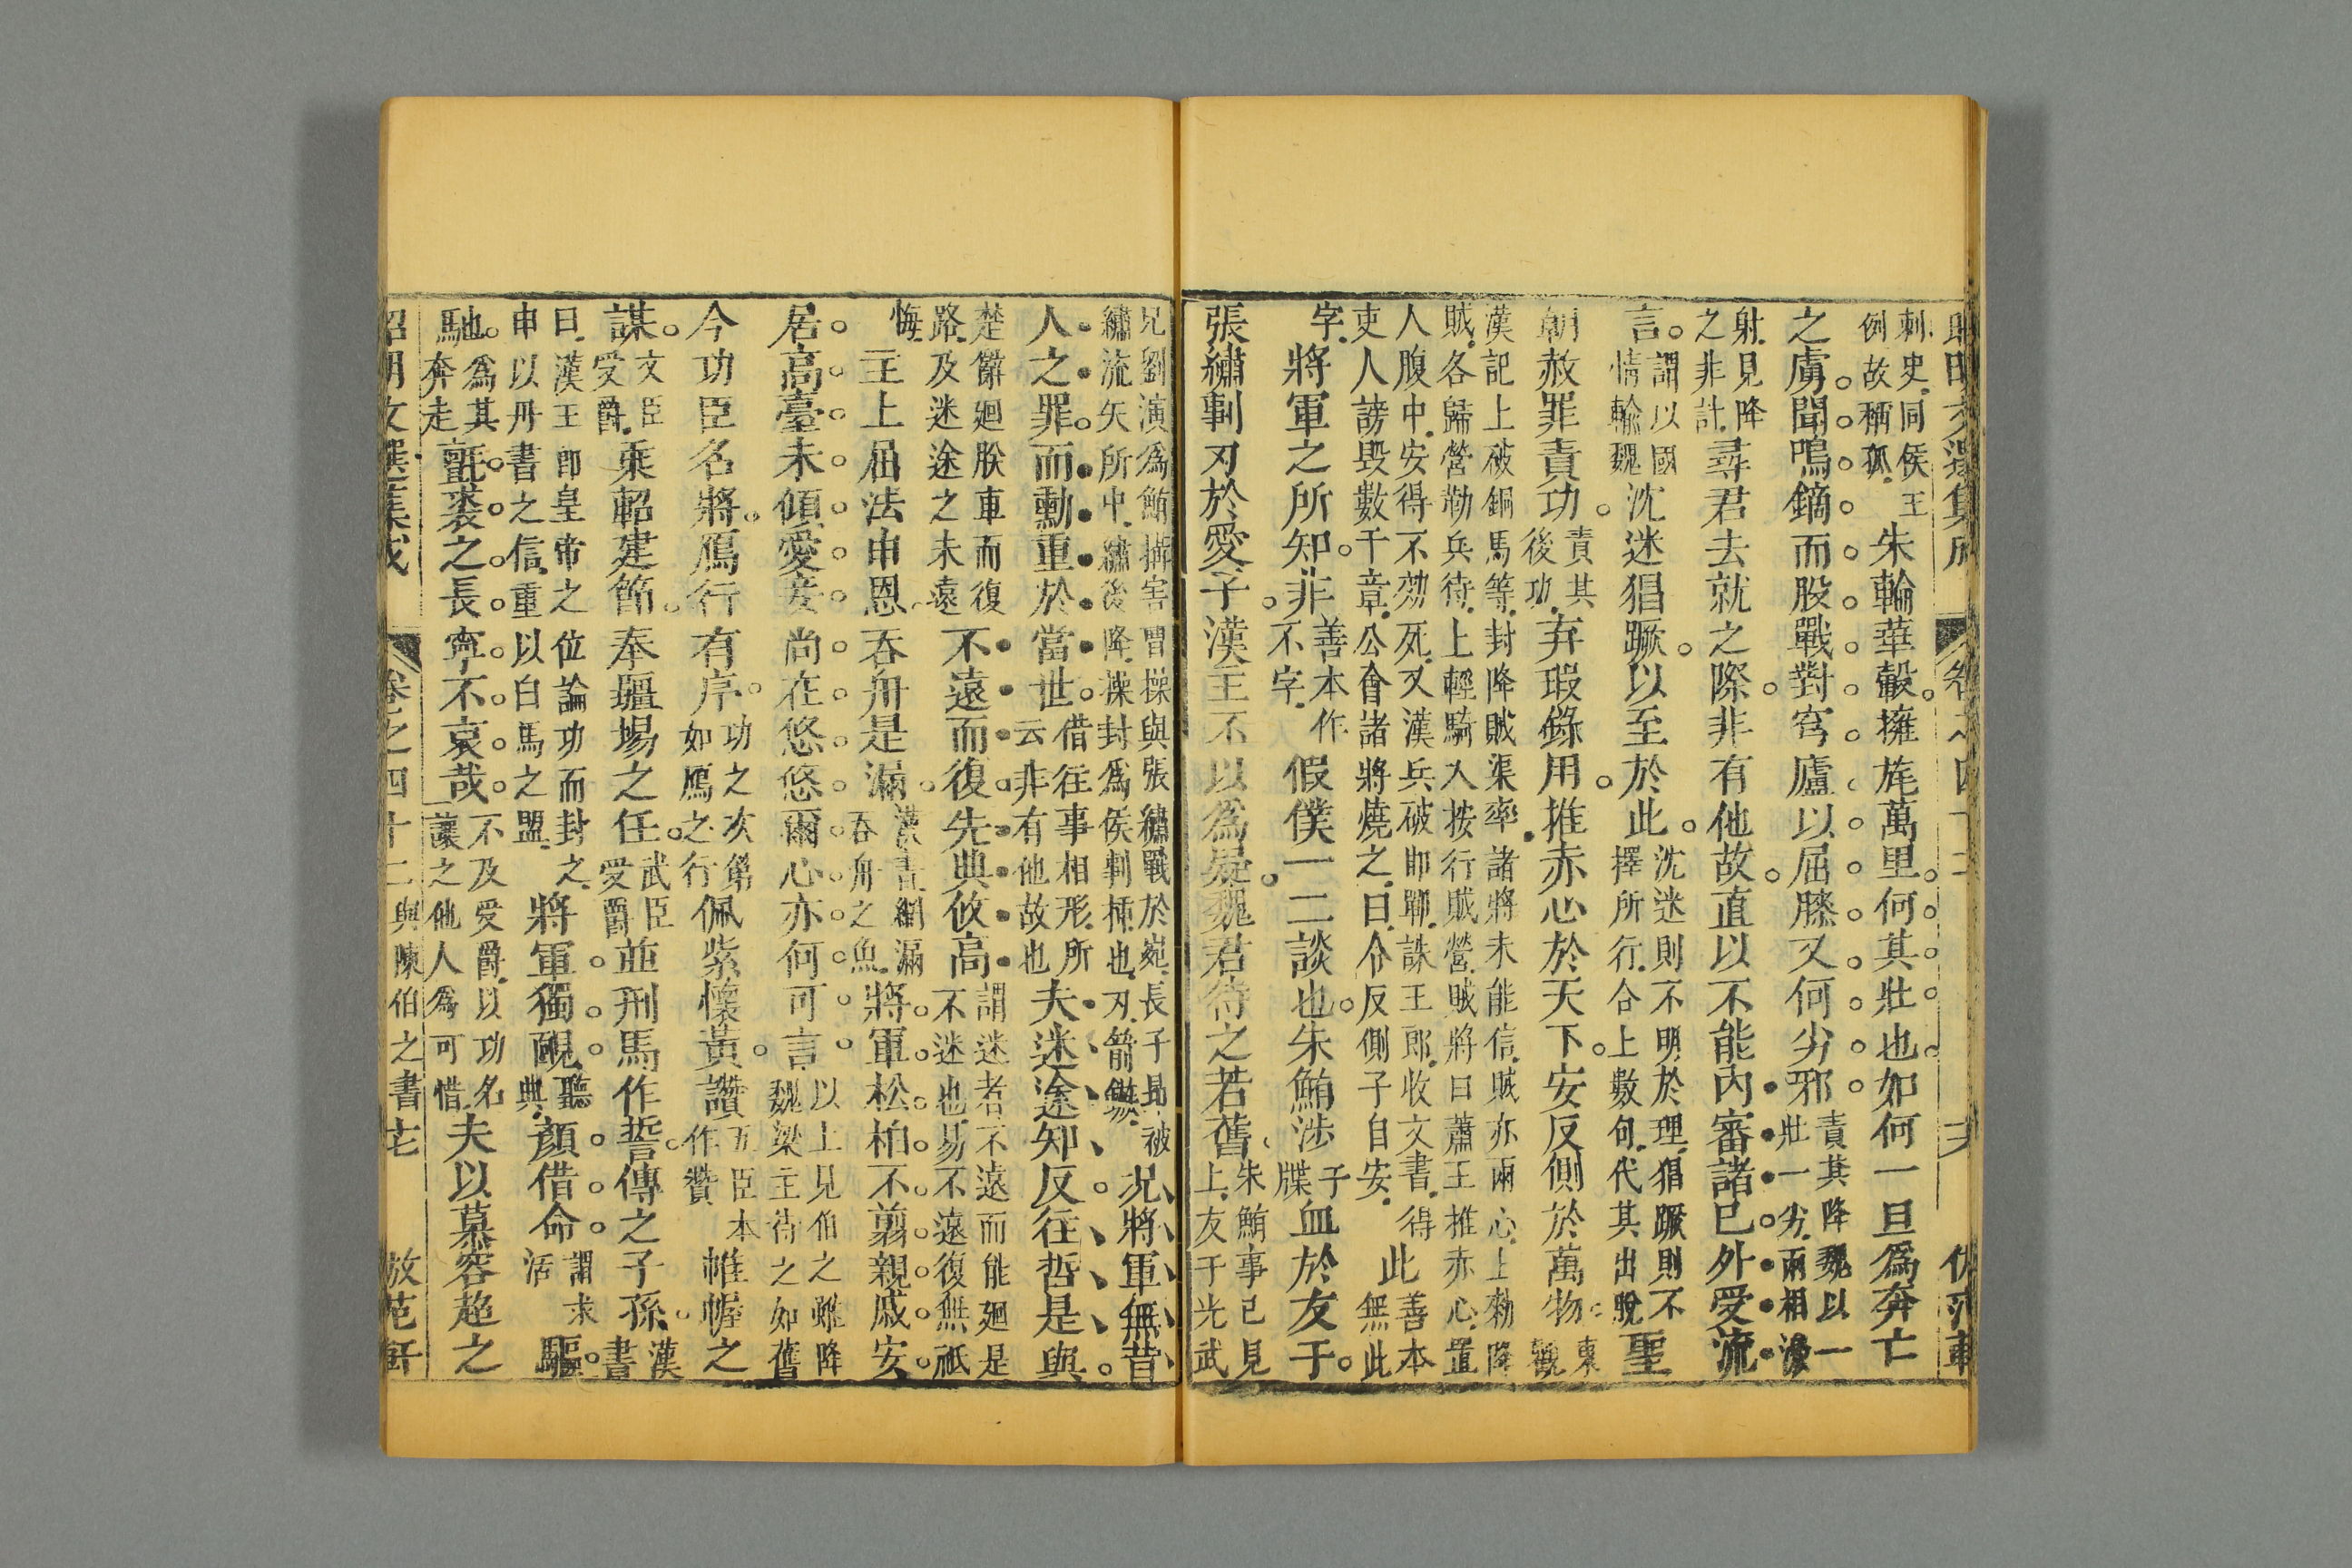 昭明文選集成 卷之四十二 六 倣范軒
刺史同侯王例故稱孤朱輪華轂擁旄萬里何其壯也如何一旦爲奔亡
之虜聞鳴鏑而股戰對穹廬以屈膝又何劣邪責其降魏以一壯一劣兩相
射見降之非計尋君去就之際非有他故直以不能內審諸已外受流
言謂以國情輸魏沈迷猖蹶以至於此沈迷則不明於理猖蹶則不擇所行合上數句代其出脫聖
朝赦罪責功責其後功弃瑕錄用推赤心於天下安反側於萬物東觀
漢記上破銅馬等封降賊渠率諸將未能信賊亦兩心上勑降賊各歸營勒兵待上輕騎入按行賊營賊將曰蕭王推赤心置
人腹中安得不効死又漢兵破邯鄲誅王郎收文書得吏人謗毁數千章公會諸將燒之曰令反側子自安此善本無此
字將軍之所知非善本作不字假僕一二談也朱鮪涉子牒血於友于
張繡剚刃於愛子漢主不以爲疑魏君待之若舊朱鮪事已見上友于光武
兄劉演爲鮪搆害曹操與張繡戰於宛長子昂被繡流矢所中繡後降操封爲侯剚揷也刃箭鏃況將軍無昔
人之罪而勳重於當世借往事相形所云非有他故也夫迷途知反往哲是與
楚辭廻朕車而復路及迷途之未遠不遠而復先典攸高謂迷者不遠而能廻是不迷也易不遠復無祇
悔主上屈法申恩吞舟是漏漢書網漏吞舟之魚將軍松柏不翦親戚安
居高臺未傾愛妾尚在悠悠爾心亦何可言以上見伯之雖降魏梁主待之如舊
今功臣名將鴈行有序功之次第如鴈之行佩紫懷黃讚五臣本作贊帷幄之
謀文臣受爵乘軺建節奉疆埸之任武臣受爵並刑馬作誓傳之子孫漢書
曰漢王卽皇帝之位論功而封之申以丹書之信重以白馬之盟將軍獨靦聽典顏借命謂求活驅
馳也爲其奔走氈裘之長寧不哀哉不及受爵以功名讓之他人爲可惜夫以慕容超之
昭明文選集成 卷之四十二 與陳伯之書 七 倣范軒